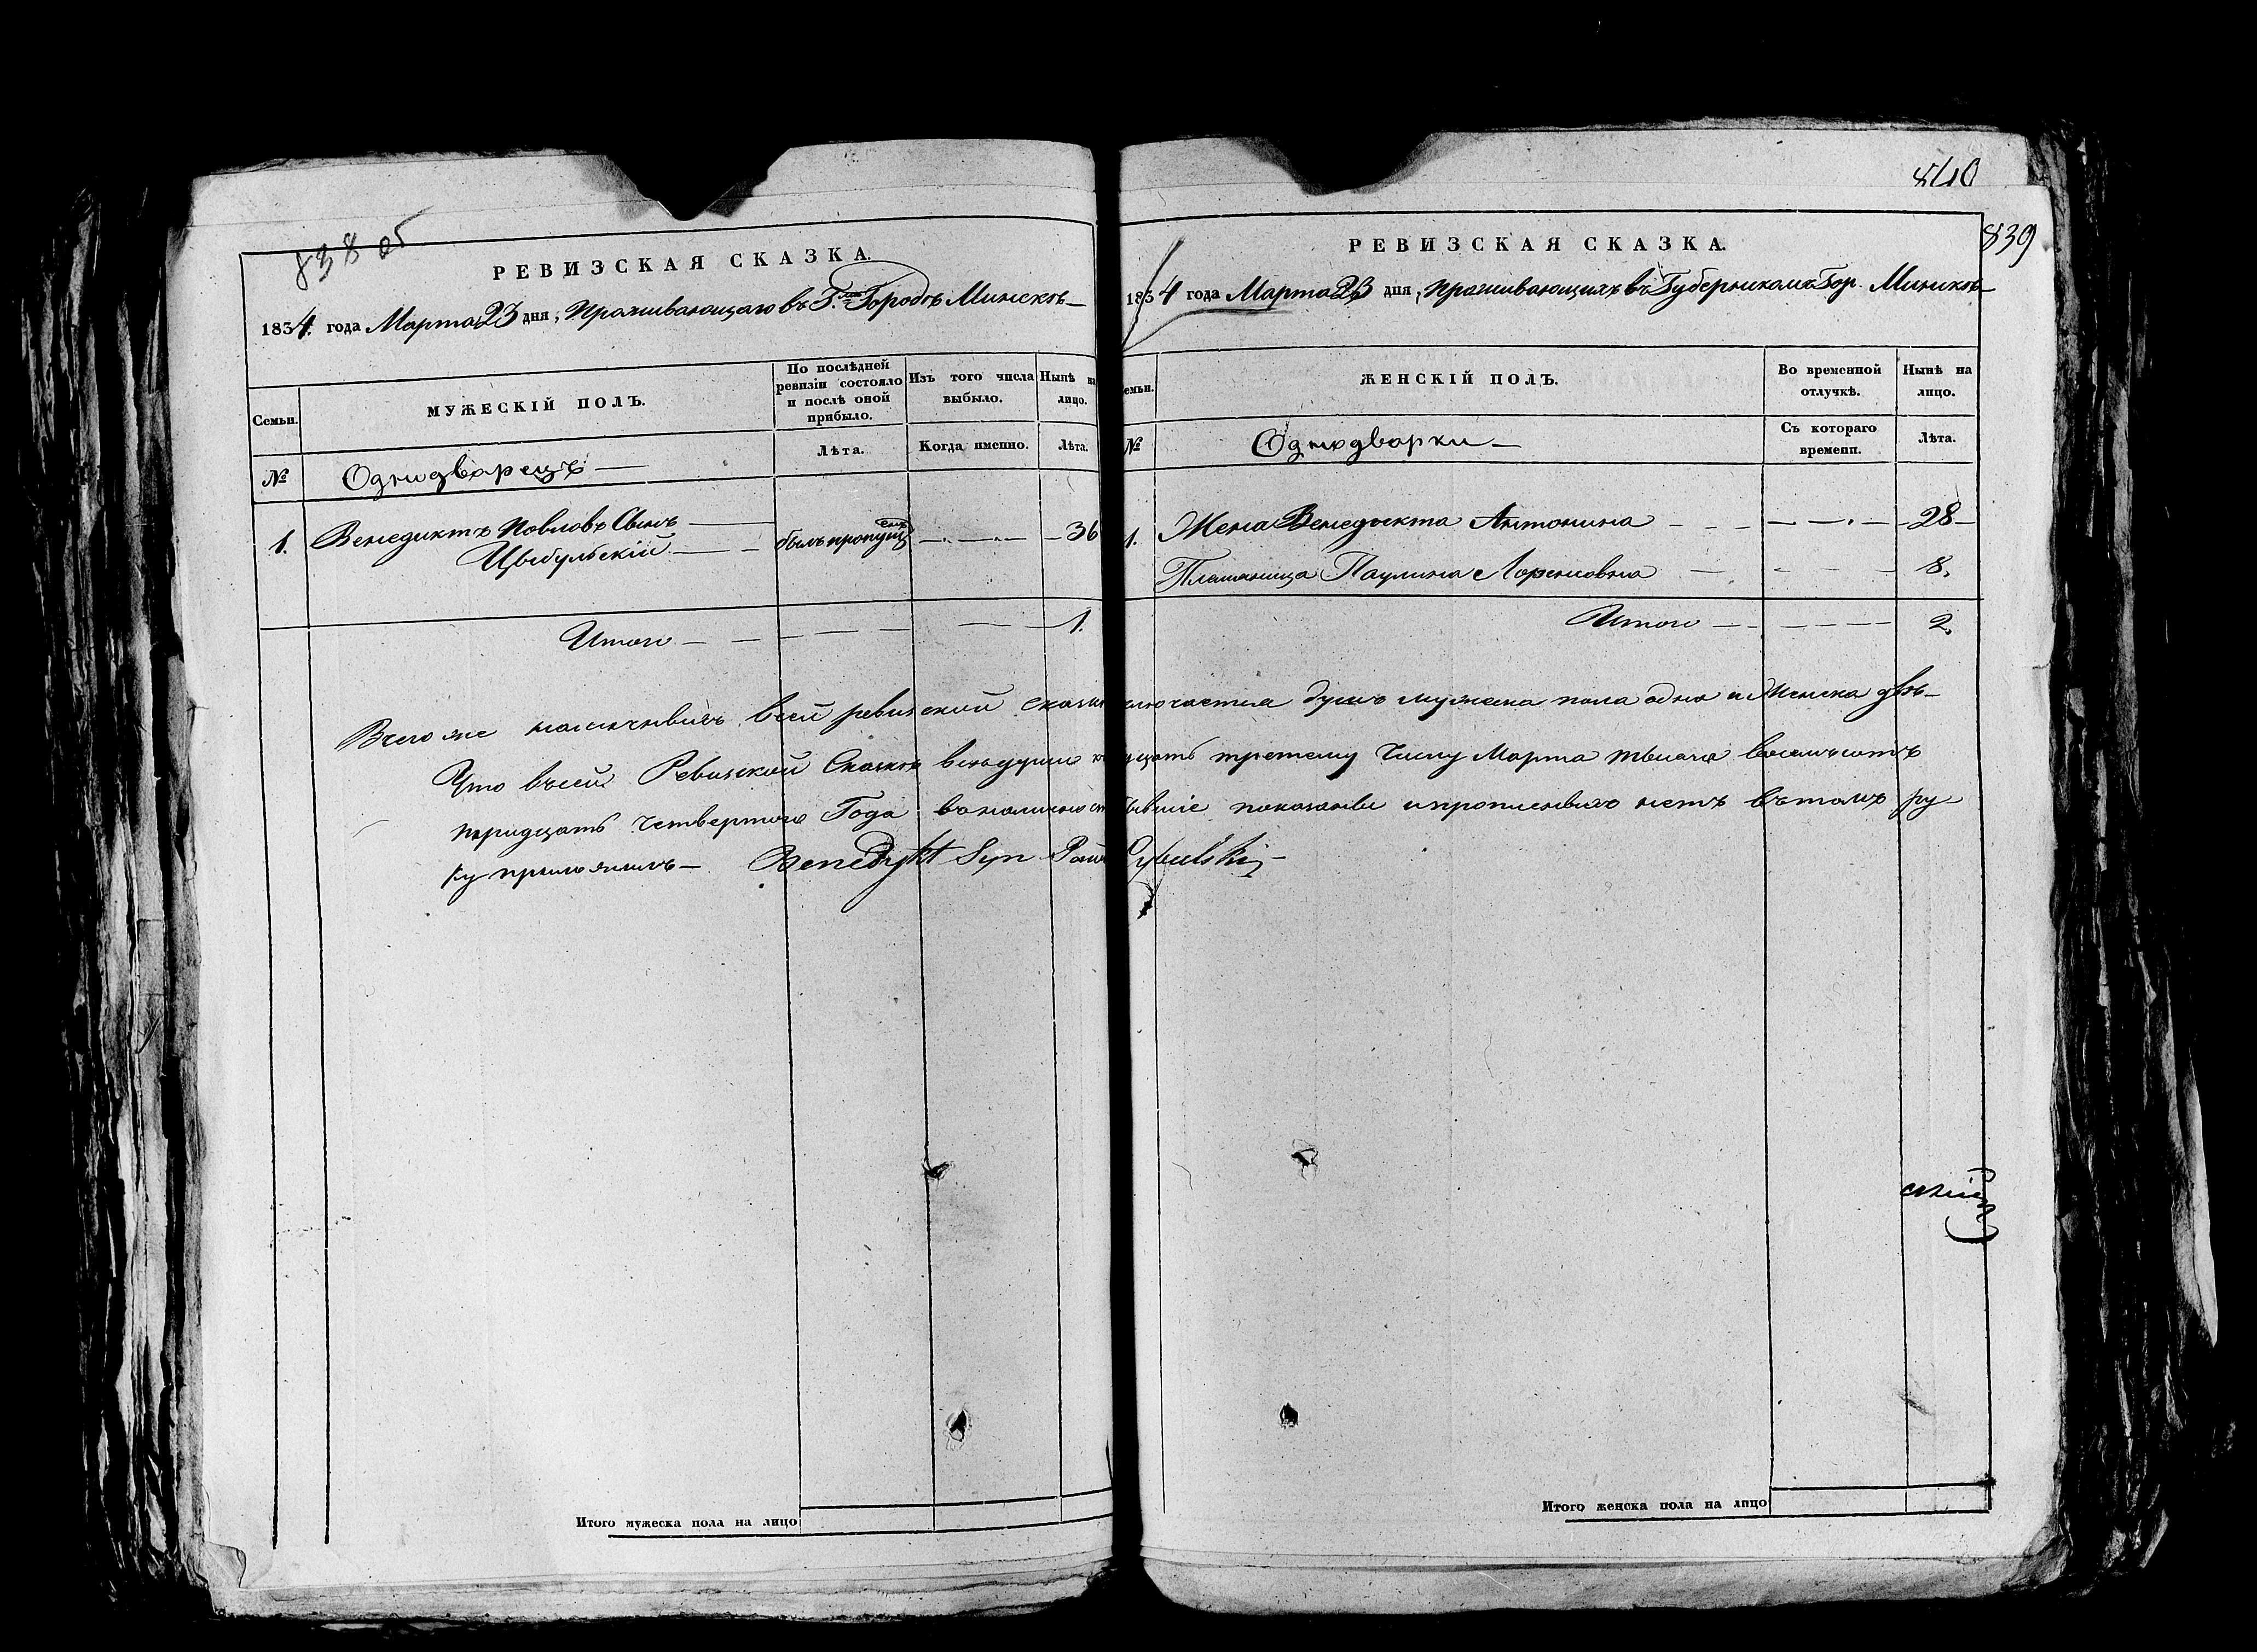 838 об
РЕВИЗСКАЯ СКАЗКА.
1834. года Марта 23 дня, Проживающаго въ Г. Городѣ Минскѣ
Семьи.
МУЖЕСКІЙ ПОЛЪ.
По послѣдней ревизіи состояло и послѣ оной прибыло.
Изъ того числа выбыло.
Нынѣ на лицо.
№
Однодворецъ
Лѣта.
Когда именно.
Лѣта.
1. Венедиктъ Повловъ Сынъ
Цыбульскій
былъ пропущенъ
36
Итого 1.
840
839
РЕВИЗСКАЯ СКАЗКА.
1834 года Марта 23 дня, Проживающихъ въ Губернскомъ Гор. Минскѣ
емьи.
ЖЕНСКІЙ ПОЛЪ.
Во временной отлучкѣ.
Нынѣ на лицо.
№
Однодворки
Съ котораго времени.
Лѣта.
1. Жена Венедыкта Антонина 28
Племяница Паулина Лоренсовна 8.
Итого 2.
Всего же наличныхъ всей ревизской душъ мужеска пола одна и Женска двѣ
Что въ сей Ревизской Сказки третему Числу Марта тысяча восемьсотъ
тридцать четвертого Года показаны и прописныхъ нетъ въ томъ ру
ку приложилъ Benedykt Syn Cybulski
Итого мужеска пола на лицо
Итого женска пола на лицо